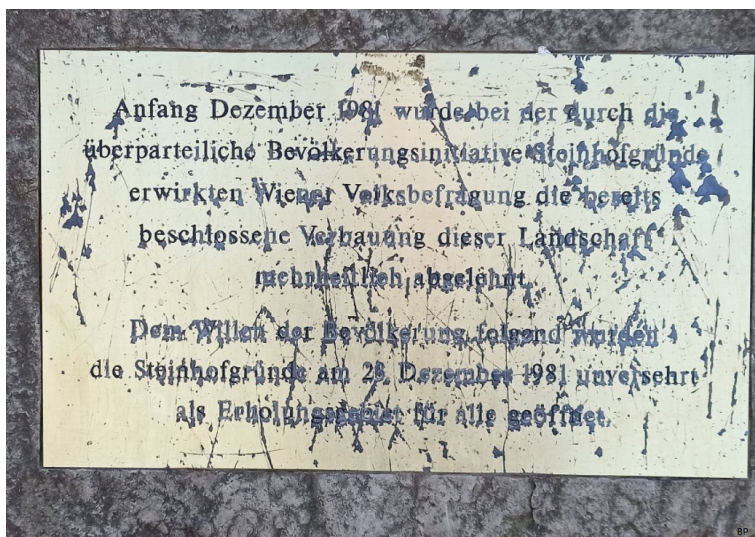 Anfang Dezember 1981 wurde bei der durch die
überparteiliche Bevölkerungsinitiative Steinhofgründe
erwirkten Wiener Volksbefragung die bereits
beschlossene Verbauung dieser Landschaft
mehrheitlich abgelehnt.
Dem Willen der Bevölkerung folgend wurden
die Steinhofgründe am 28. Dezember 1981 unversehrt
als Erholungsgebiet für alle geöffnet.
BP